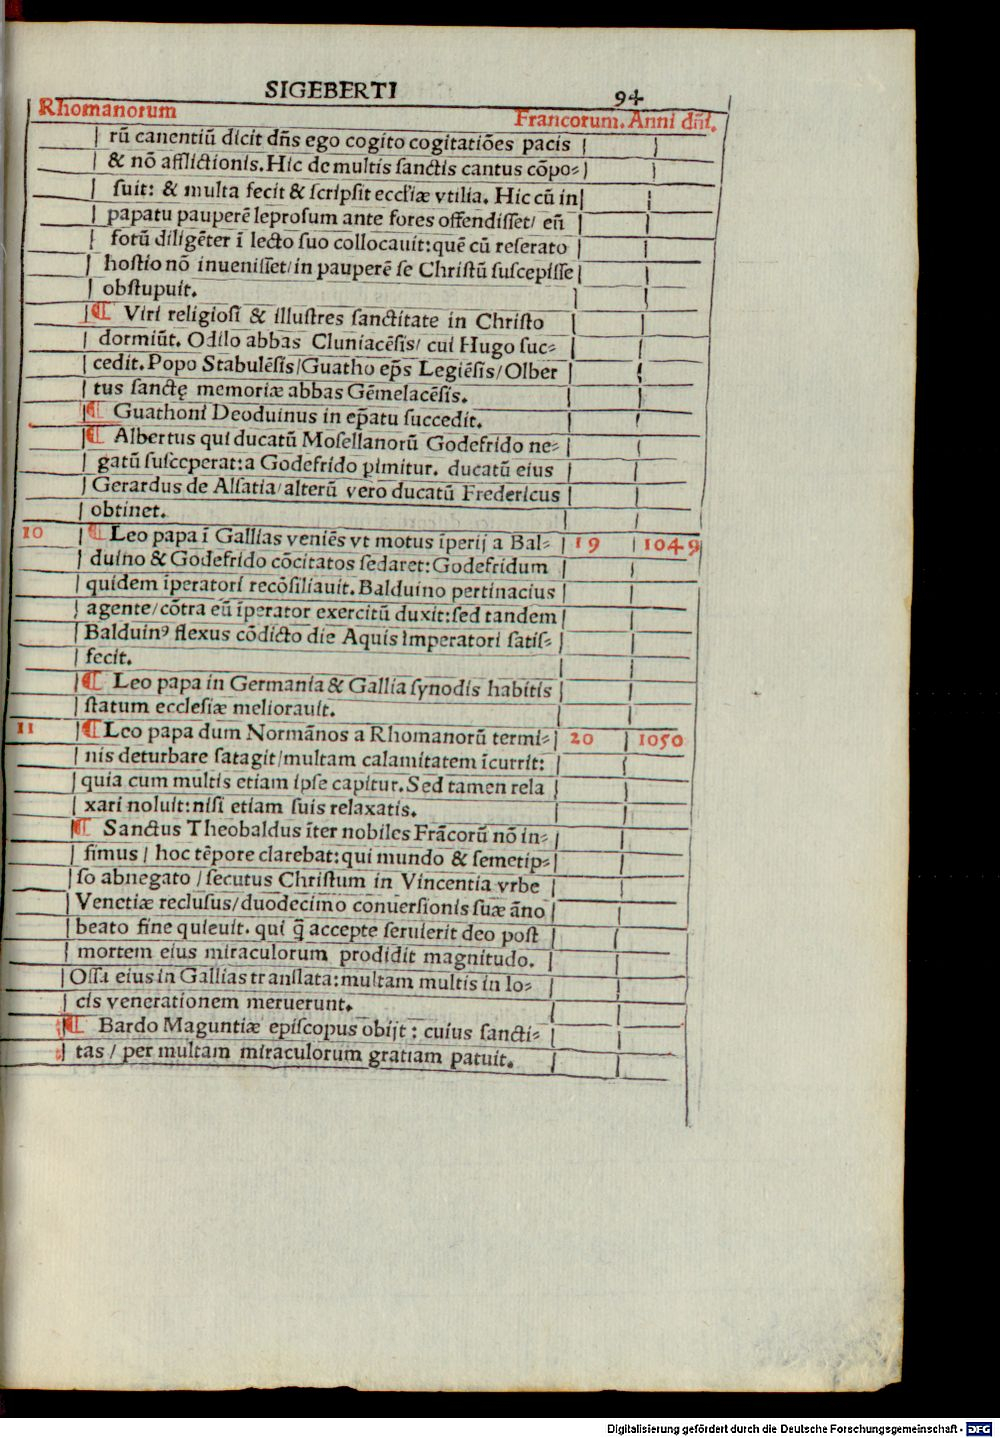 SIGEBERTI 94
Rhomanorum Francorum. Anni dñi.
rũ canentiũ dicit dñs ego cogito cogitatiões pacis
& nõ afflictionis. Hic de multis sanctis cantus cõpo-
suit: & multa fecit & scripsit eccłiæ vtilia. Hic cũ in
papatu pauperẽ leprosum ante fores offendisset/ eũ
fotũ diligẽter ĩ lecto suo collocauit: quẽ cũ reserato
hostio nõ inuenisset/ in pauperẽ se Christũ suscepisse
obstupuit.
¶ Viri religiosi & illustres sanctitate in Christo
dormiũt. Odilo abbas Cluniacẽsis/ cui Hugo suc-
cedit. Popo Stabulẽsis/ Guatho ep̃s Legiẽsis/ Olber
tus sanctę memoriæ abbas Gẽmelacẽsis.
¶ Guathoni Deoduinus in ep̃atu succedit.
¶ Albertus qui ducatũ Mosellanorũ Godefrido ne-
gatũ susceperat: a Godefrido pimitur. ducatũ eius
Gerardus de Alsatia/ alterũ vero ducatũ Fredericus
obtinet.
10 ¶ Leo papa ĩ Gallias veniẽs vt motus ĩperij a Bal- 19 1049
duino & Godefrido cõcitatos sedaret: Godefridum
quidem ĩperatori recõsiliauit. Balduino pertinacius
agente/ cõtra eũ ĩperator exercitũ duxit: sed tandem
Balduinꝰ flexus cõdicto die Aquis imperatori satis-
fecit.
¶ Leo papa in Germania & Gallia synodis habitis
statum ecclesiæ meliorauit.
11 ¶ Leo papa dum Normãnos a Rhomanorũ termi- 20 1050
nis deturbare satagit/ multam calamitatem ĩcurrit:
quia cum multis etiam ipse capitur. Sed tamen rela
xari noluit: nisi etiam suis relaxatis.
¶ Sanctus Theobaldus ĩter nobiles Frãcorũ nõ in-
fimus / hoc tẽpore clarebat: qui mundo & semetip-
so abnegato / secutus Christum in Vincentia vrbe
Venetiæ reclusus/ duodecimo conuersionis suæ ãno
beato fine quieuit. qui q̃ accepte seruierit deo post
mortem eius miraculorum prodidit magnitudo.
Ossa eius in Gallias translata: multam multis in lo-
cis venerationem meruerunt.
¶ Bardo Maguntiæ episcopus obijt: cuius sancti-
tas / per multam miraculorum gratiam patuit.
Digitalisierung gefördert durch die Deutsche Forschungsgemeinschaft - DFG